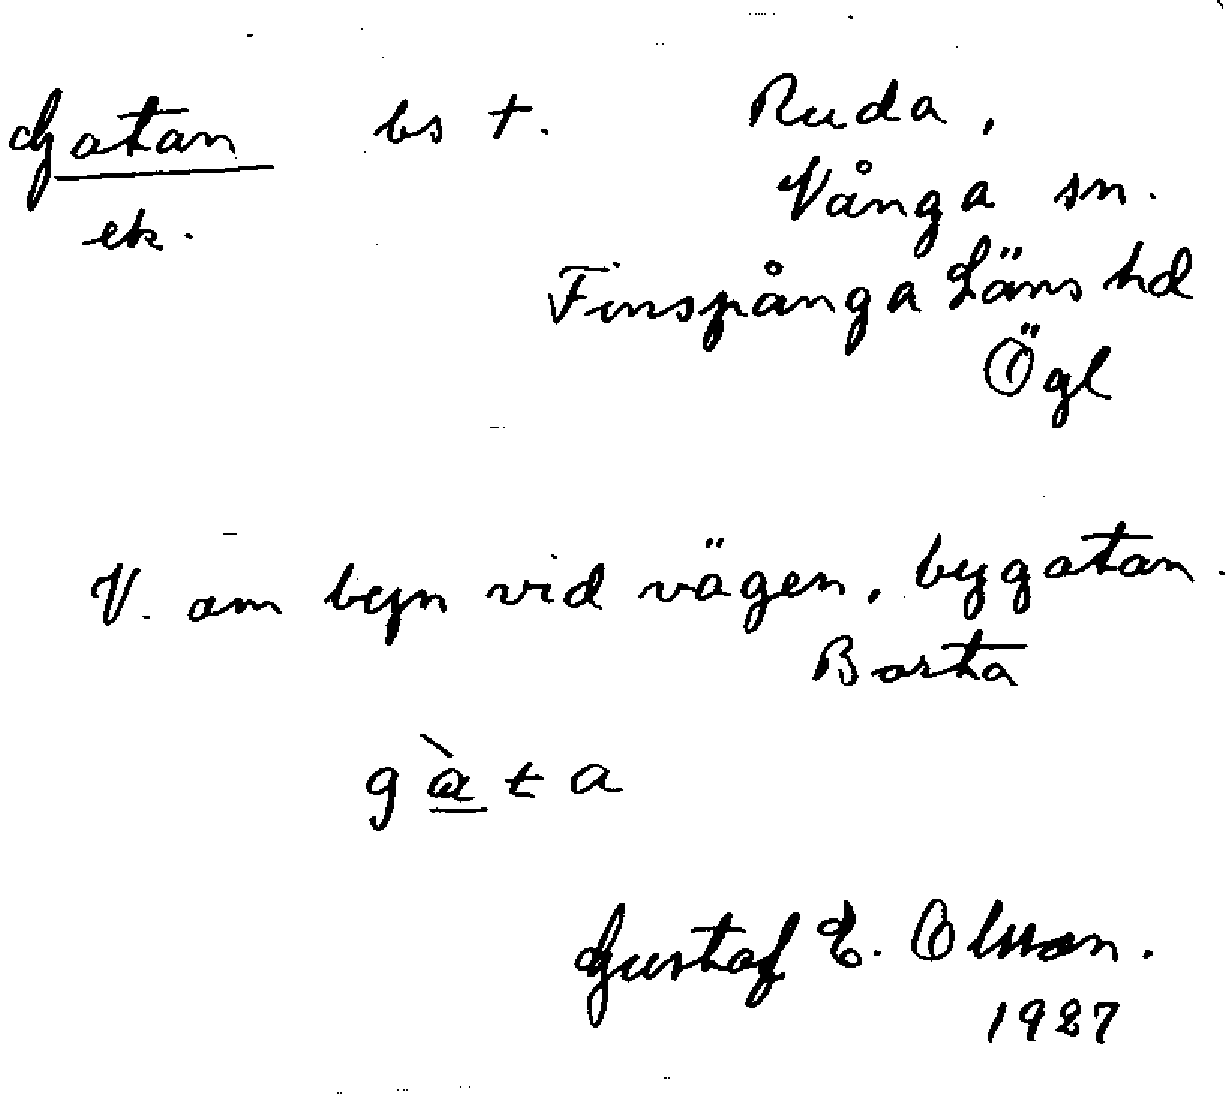 Gatan bs †. Ruda,
ek. Vånga sn.
Finspånga Läns hd
Ögl
V. om byn vid vägen, bygatan.
Borta
gàta
Gustaf E. Olsson.
1927